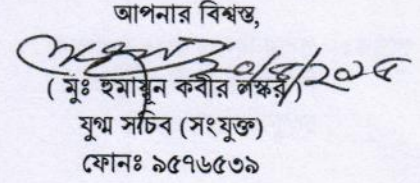 আপনার বিশ্বস্ত,
২০/৫/২০২৫
( মুঃ হুমায়ুন কবীর লস্কর )
যুগ্ম সচিব (সংযুক্ত)
ফোনঃ ৯৫৭৬৫৩৯